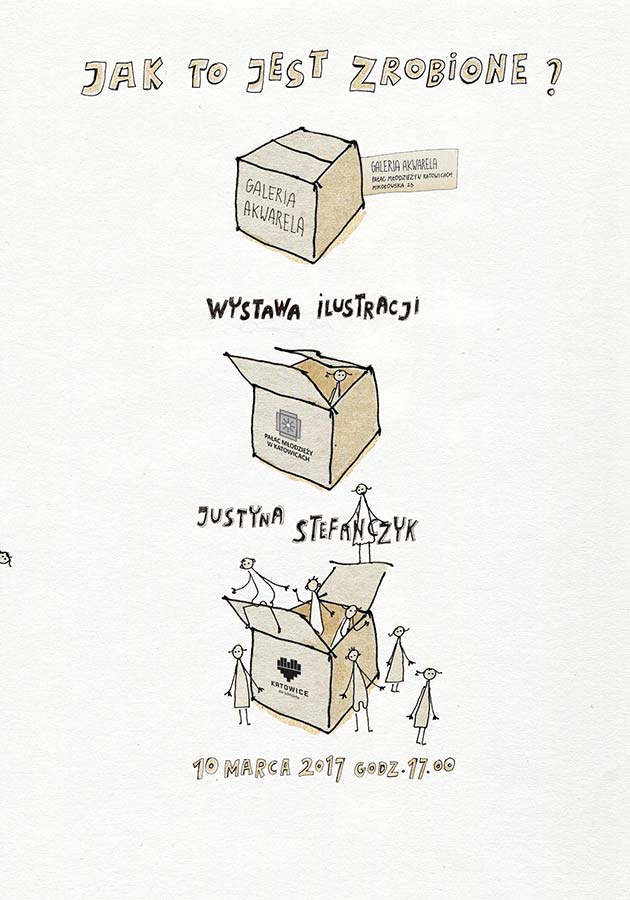 JAK TO JEST ZROBIONE?
GALERIA
AKWARELA
GALERIA AKWARELA
PAŁAC MŁODZIEŻY W KATOWICACH
MIKOŁOWSKA 26
WYSTAWA ILUSTRACJI
PAŁAC MŁODZIEŻY
W KATOWICACH
JUSTYNA STEFAŃCZYK
KATOWICE
10 MARCA 2017 GODZ. 17.00